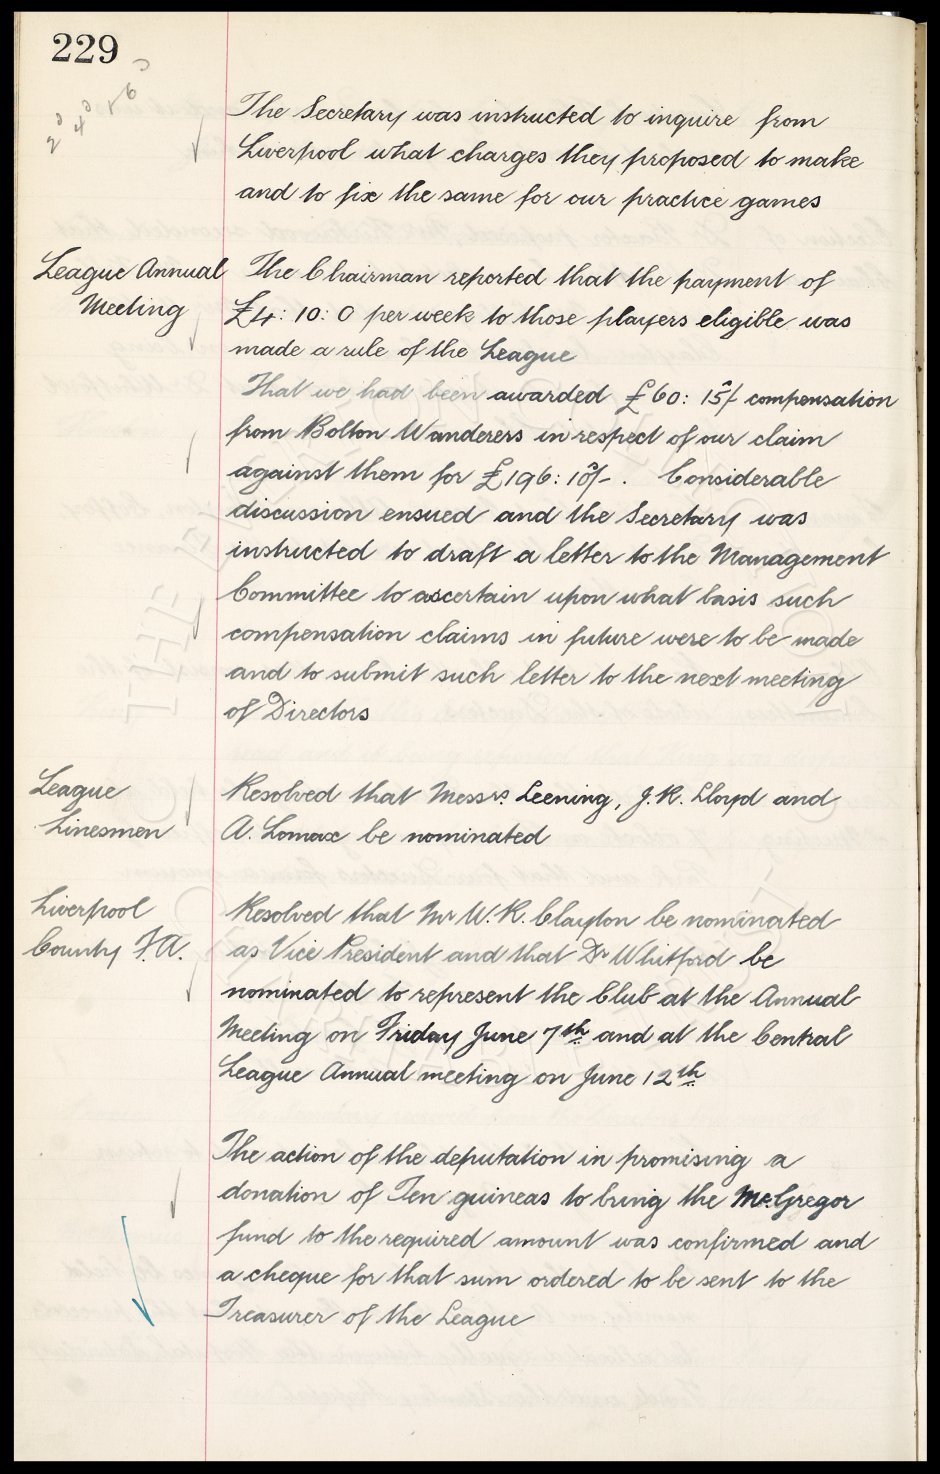 229
2/3 4/3 1/6
The Secretary was instructed to inquire from
Liverpool what charges they proposed to make
and to fix the same for our practice games
League Annual
Meeting
The Chairman reported that the payment of
£4: 10: 0 per week to those players eligible was
made a rule of the League
That we had been awarded £60: 15/- compensation
from Bolton Wanderers in respect of our claim
against them for £196: 10/-. Considerable
discussion ensued and the Secretary was
instructed to draft a letter to the Management
Committee to ascertain upon what basis such
compensation claims in future were to be made
and to submit such letter to the next meeting
of Directors
League
Linesmen
Resolved that Messrs. Leening, J.R. Lloyd and
A. Lomax be nominated
Liverpool
County F.A.
Resolved that Mr W.R. Clayton be nominated
as Vice President and that Dr Whitford be
nominated to represent the Club at the Annual
Meeting on Friday June 7th and at the Central
League Annual meeting on June 12th
The action of the deputation in promising a
donation of Ten guineas to bring the McGregor
fund to the required amount was confirmed and
a cheque for that sum ordered to be sent to the
Treasurer of the League